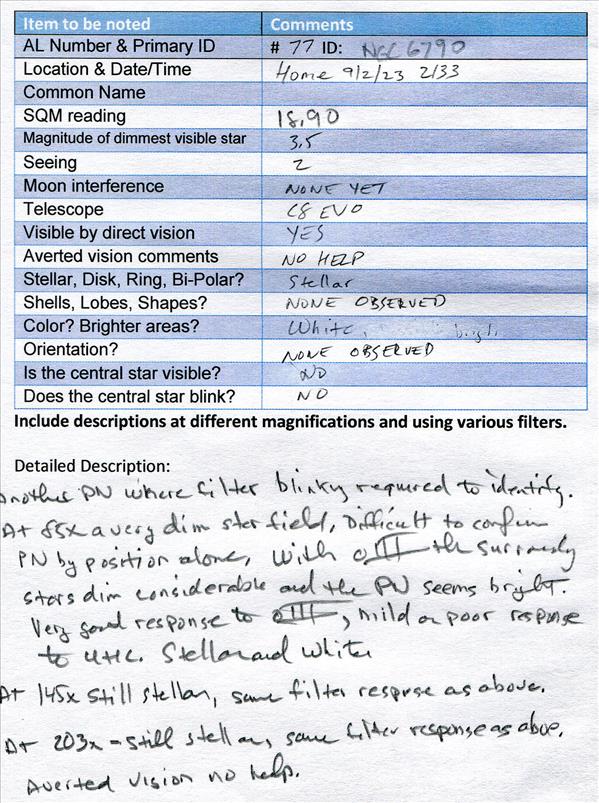 Item to be noted Comments
AL Number & Primary ID # 77 ID: NGC 6790
Location & Date/Time Home 9/2/23 2133
Common Name
SQM reading 18.90
Magnitude of dimmest visible star 3.5
Seeing 2
Moon interference NONE YET
Telescope C8 EVO
Visible by direct vision YES
Averted vision comments NO HELP
Stellar, Disk, Ring, Bi-Polar? Stellar
Shells, Lobes, Shapes? NONE OBSERVED
Color? Brighter areas? White,
Orientation? NONE OBSERVED
Is the central star visible? NO
Does the central star blink? NO
Include descriptions at different magnifications and using various filters.
Detailed Description:
Another PN where filter blinky required to identify.
At 85x a very dim star field, Difficult to confirm
PN by position alone, with OIII the surroundy
stars dim considerable and the PN seems bright.
Very good response to OIII, mild or poor response
to UHC. Stellar and White
At 145x still stellar, same filter response as above.
At 203x - still stellar, same filter response as above.
Averted vision no help.